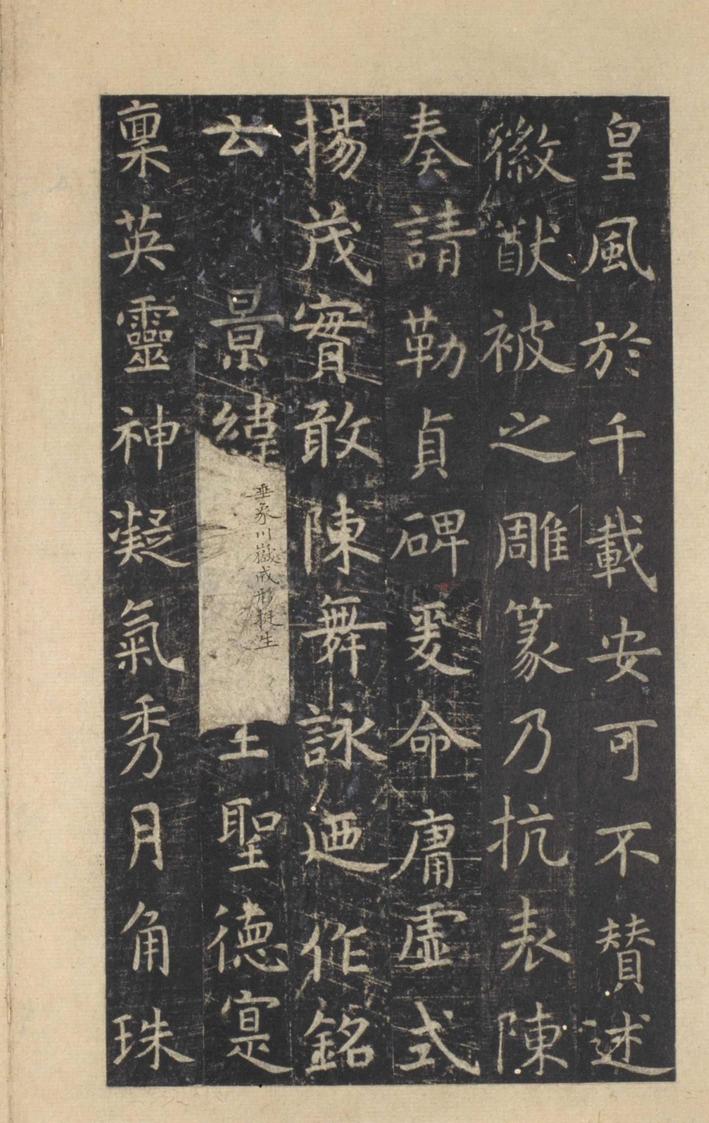 皇風於千載安可不赞述
徽猷被之雕篆乃抗表陳
奏請勒貞碑爰命庸虛式
揚茂實敢陳舞詠迺作銘
云 景緯垂象川嶽成形挺生聖德寔
稟英靈神凝氣秀月角珠